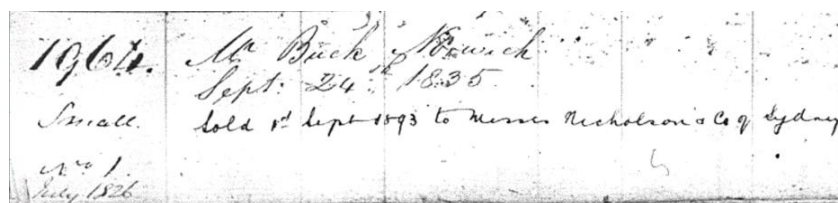 1964. Mr Buck Norwich
Sept. 24th 1835.
Small. Sold 1st Sept 1893 to Messrs Nicholson & Co of Sydney
No 1.
July 1826